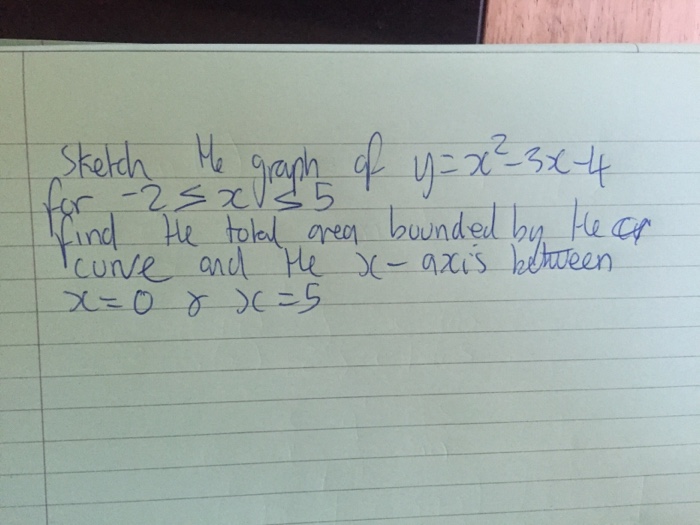 Sketch the graph of y=x²-3x-4
for -2 ≤ x ≤ 5
find the total area bounded by the
curve and the x-axis between
x=0 & x=5